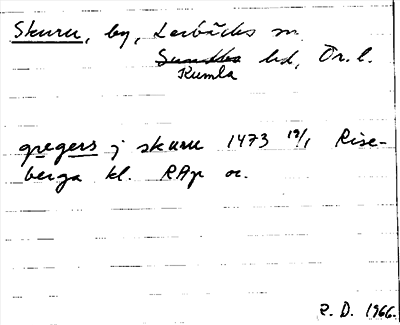 Skuru, by, Lerbäcks sn
Sundbo hd, Ör. l.
Kumla
gregers j skuru 1473 19/1 Rise-
berga kl. RAp or.
R. D. 1966.